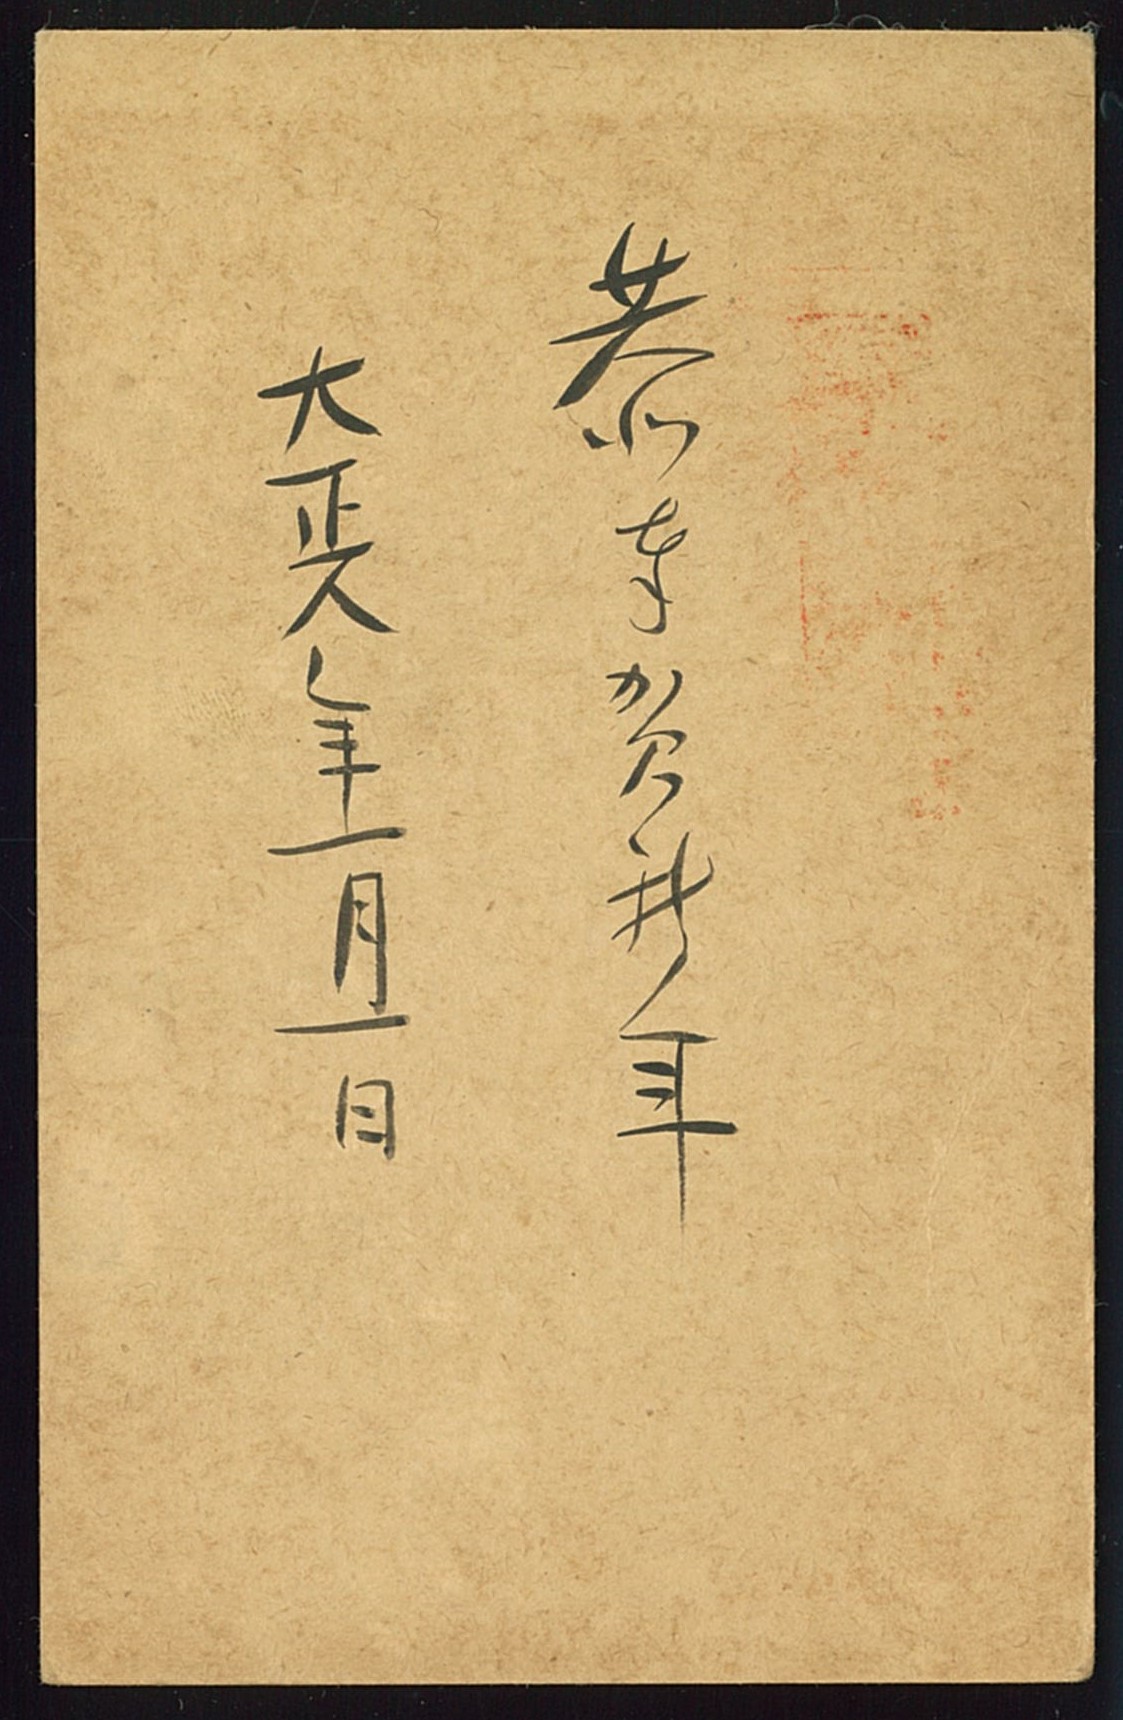 恭奉賀新年
大正八年一月一日